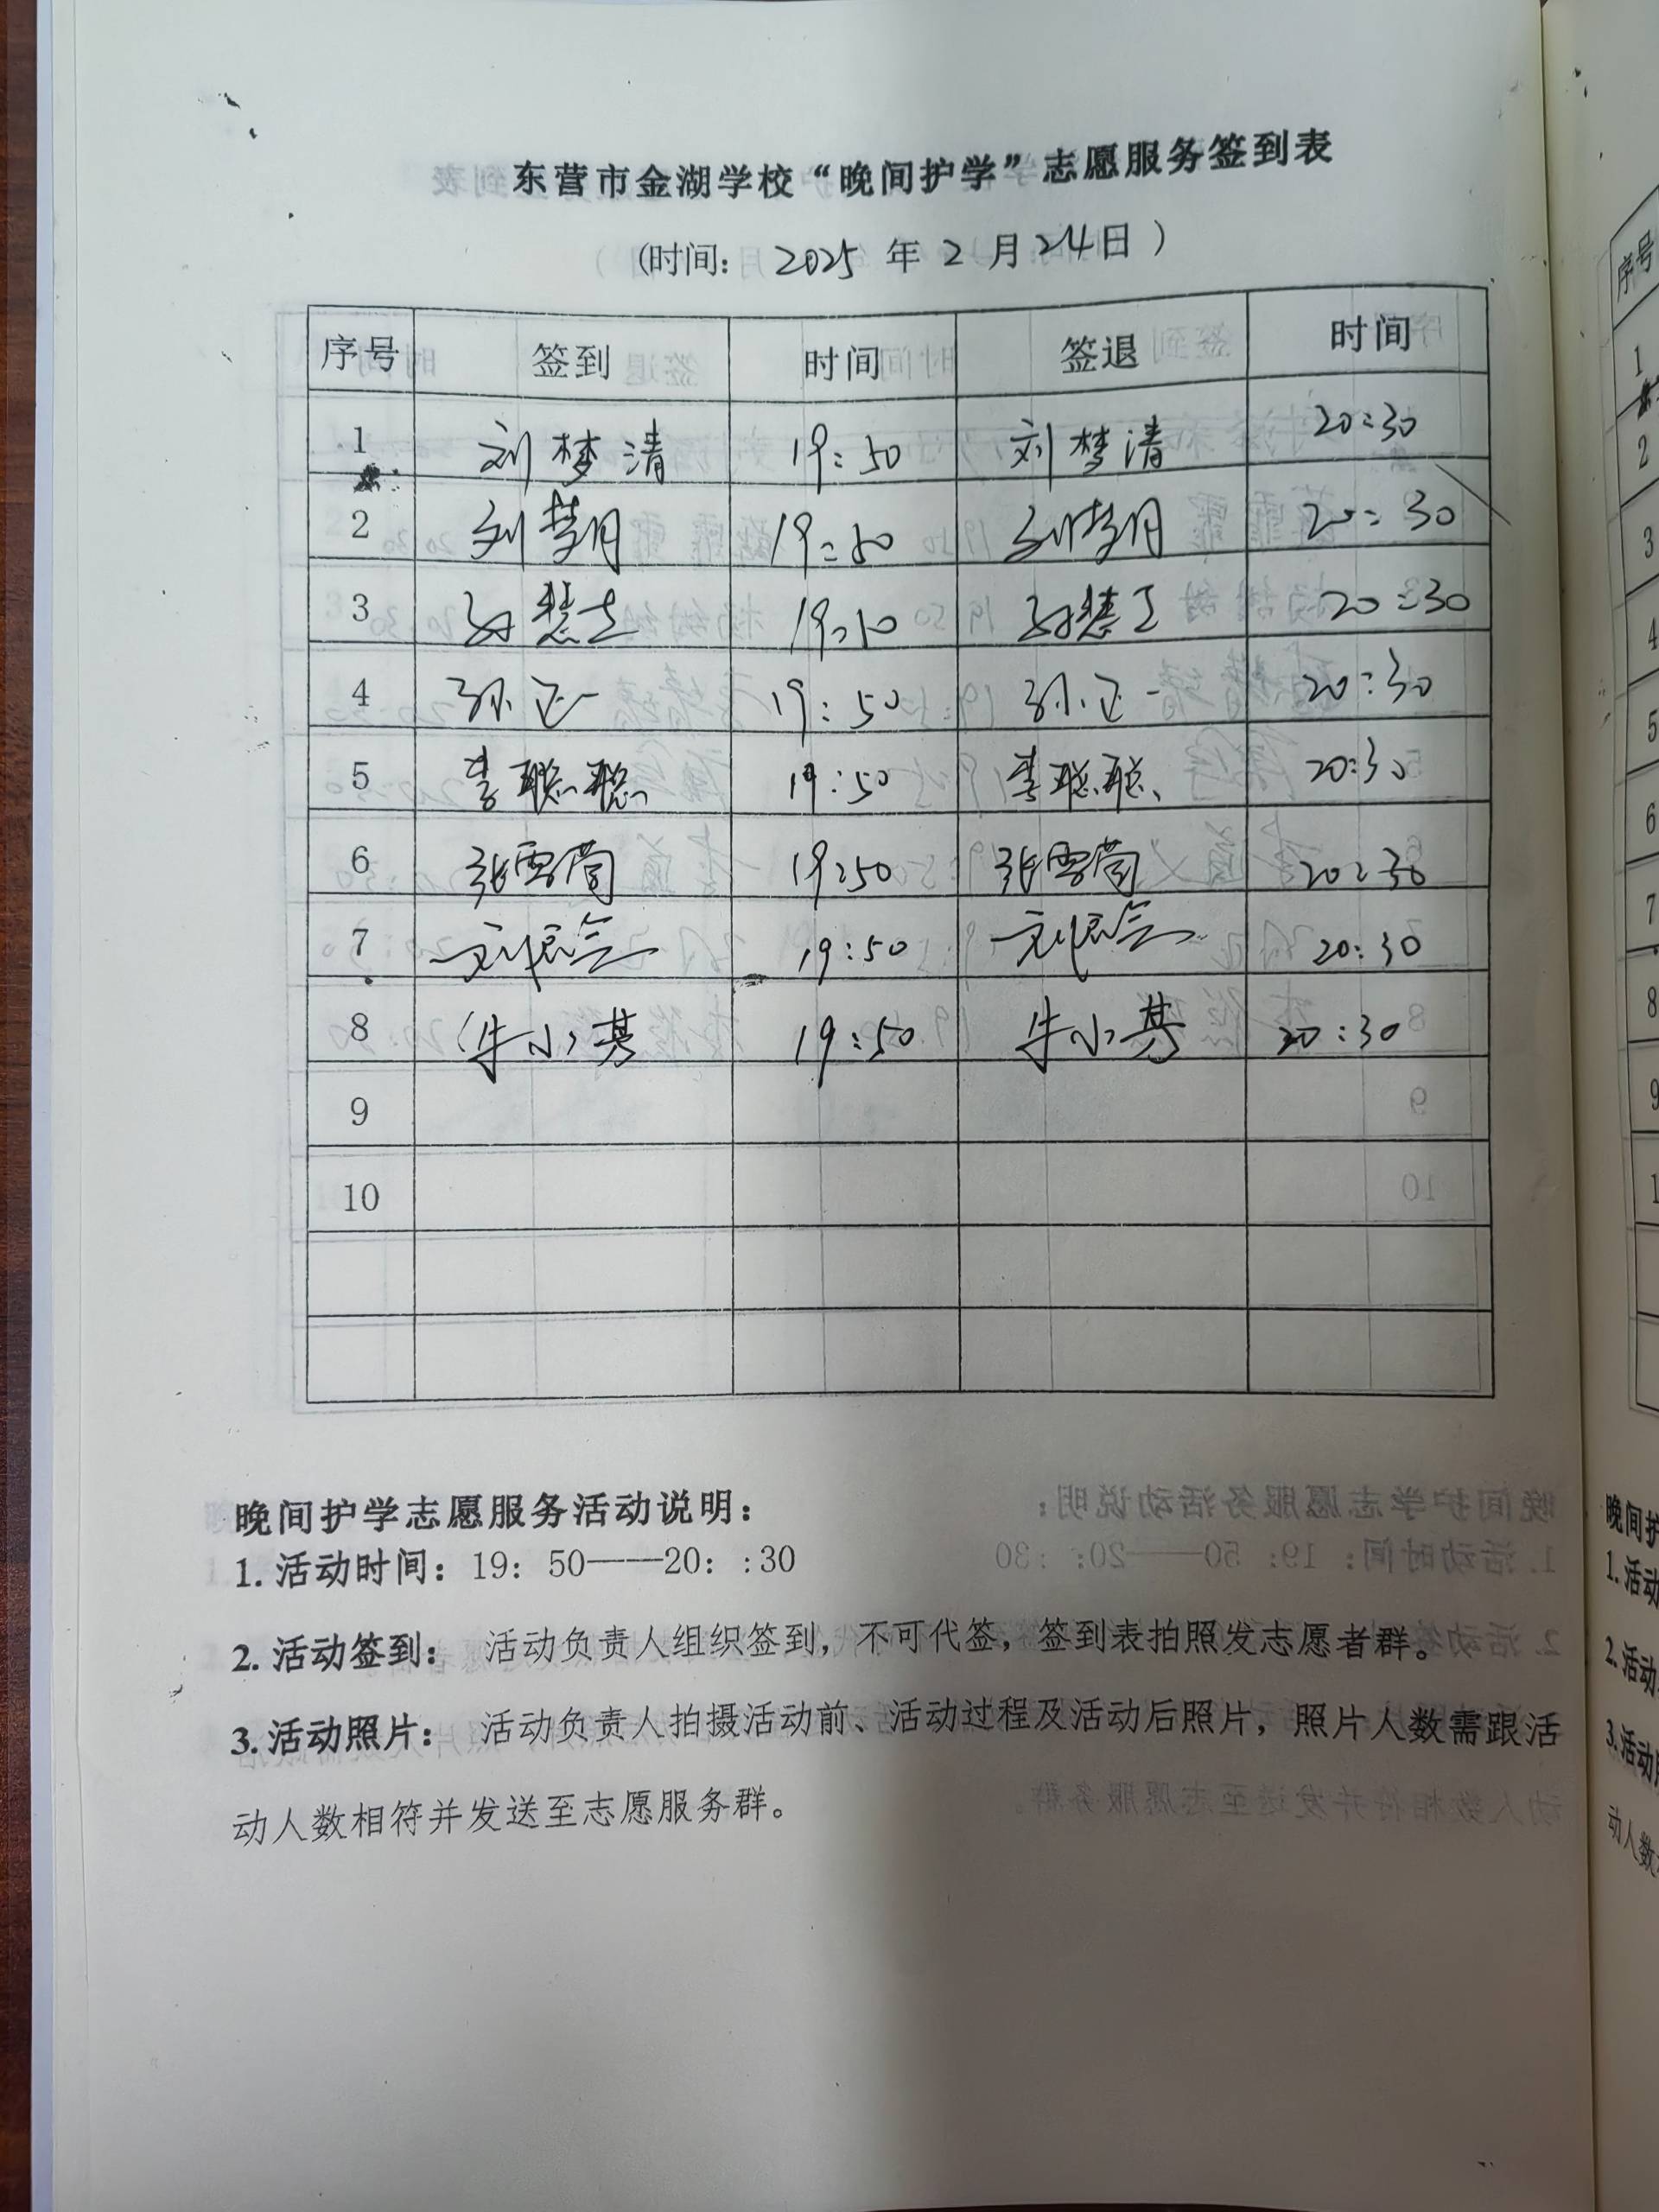 东营市金湖学校“晚间护学”志愿服务签到表
(时间: 2025 年 2 月 24日 )
序号 签到 时间 签退 时间
1 刘梦清 19:50 刘梦清 20:30
2 刘梦月 19:50 刘梦月 20:30
3 19:50 20:30
4 孙正一 19:50 孙正一 20:30
5 李聪聪 19:50 李聪聪 20:30
6 张雪莺 19:50 张雪莺 20:30
7 19:50 20:30
8 牛小芳 19:50 牛小芳 20:30
9
10
晚间护学志愿服务活动说明：
1. 活动时间：19: 50——20: :30
2. 活动签到： 活动负责人组织签到，不可代签，签到表拍照发志愿者群。
3. 活动照片： 活动负责人拍摄活动前、活动过程及活动后照片，照片人数需跟活
动人数相符并发送至志愿服务群。